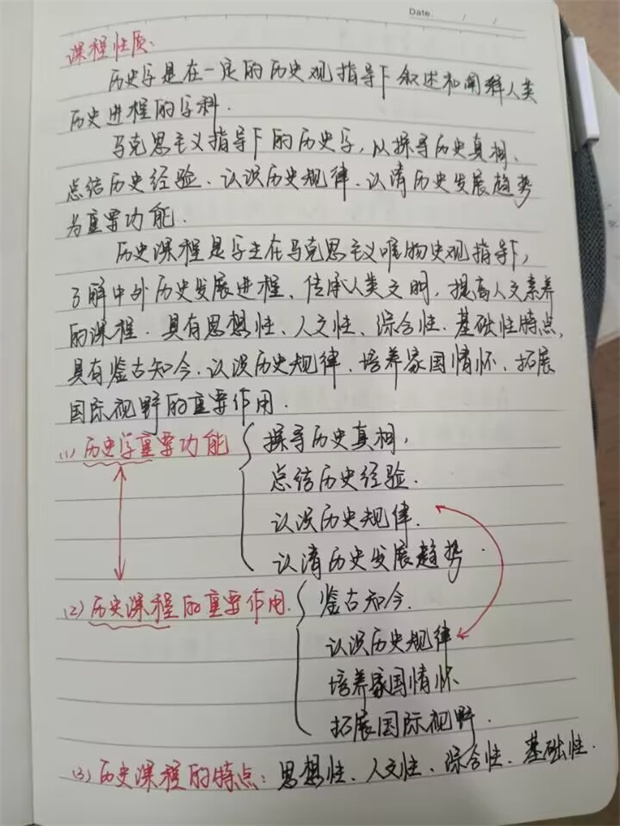 Date / /
课程性质:
历史学是在一定的历史观指导下叙述和阐释人类
历史进程的学科.
马克思主义指导下的历史学,以探寻历史真相、
总结历史经验、认识历史规律、认清历史发展趋势
为重要功能.
历史课程是学生在马克思主义唯物史观指导下,
了解中外历史发展进程、传承人类文明,提高人文素养
的课程.具有思想性、人文性、综合性、基础性特点,
具有鉴古知今、认识历史规律、培养家国情怀、拓展
国际视野的重要作用.
(1)历史学重要功能 探寻历史真相,
总结历史经验.
认识历史规律.
认清历史发展趋势.
(2)历史课程的重要作用. 鉴古知今.
认识历史规律
培养家国情怀
拓展国际视野.
(3)历史课程的特点:思想性、人文性、综合性、基础性.